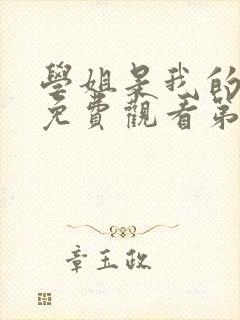 學姐是我的
免費觀看第
章玉政